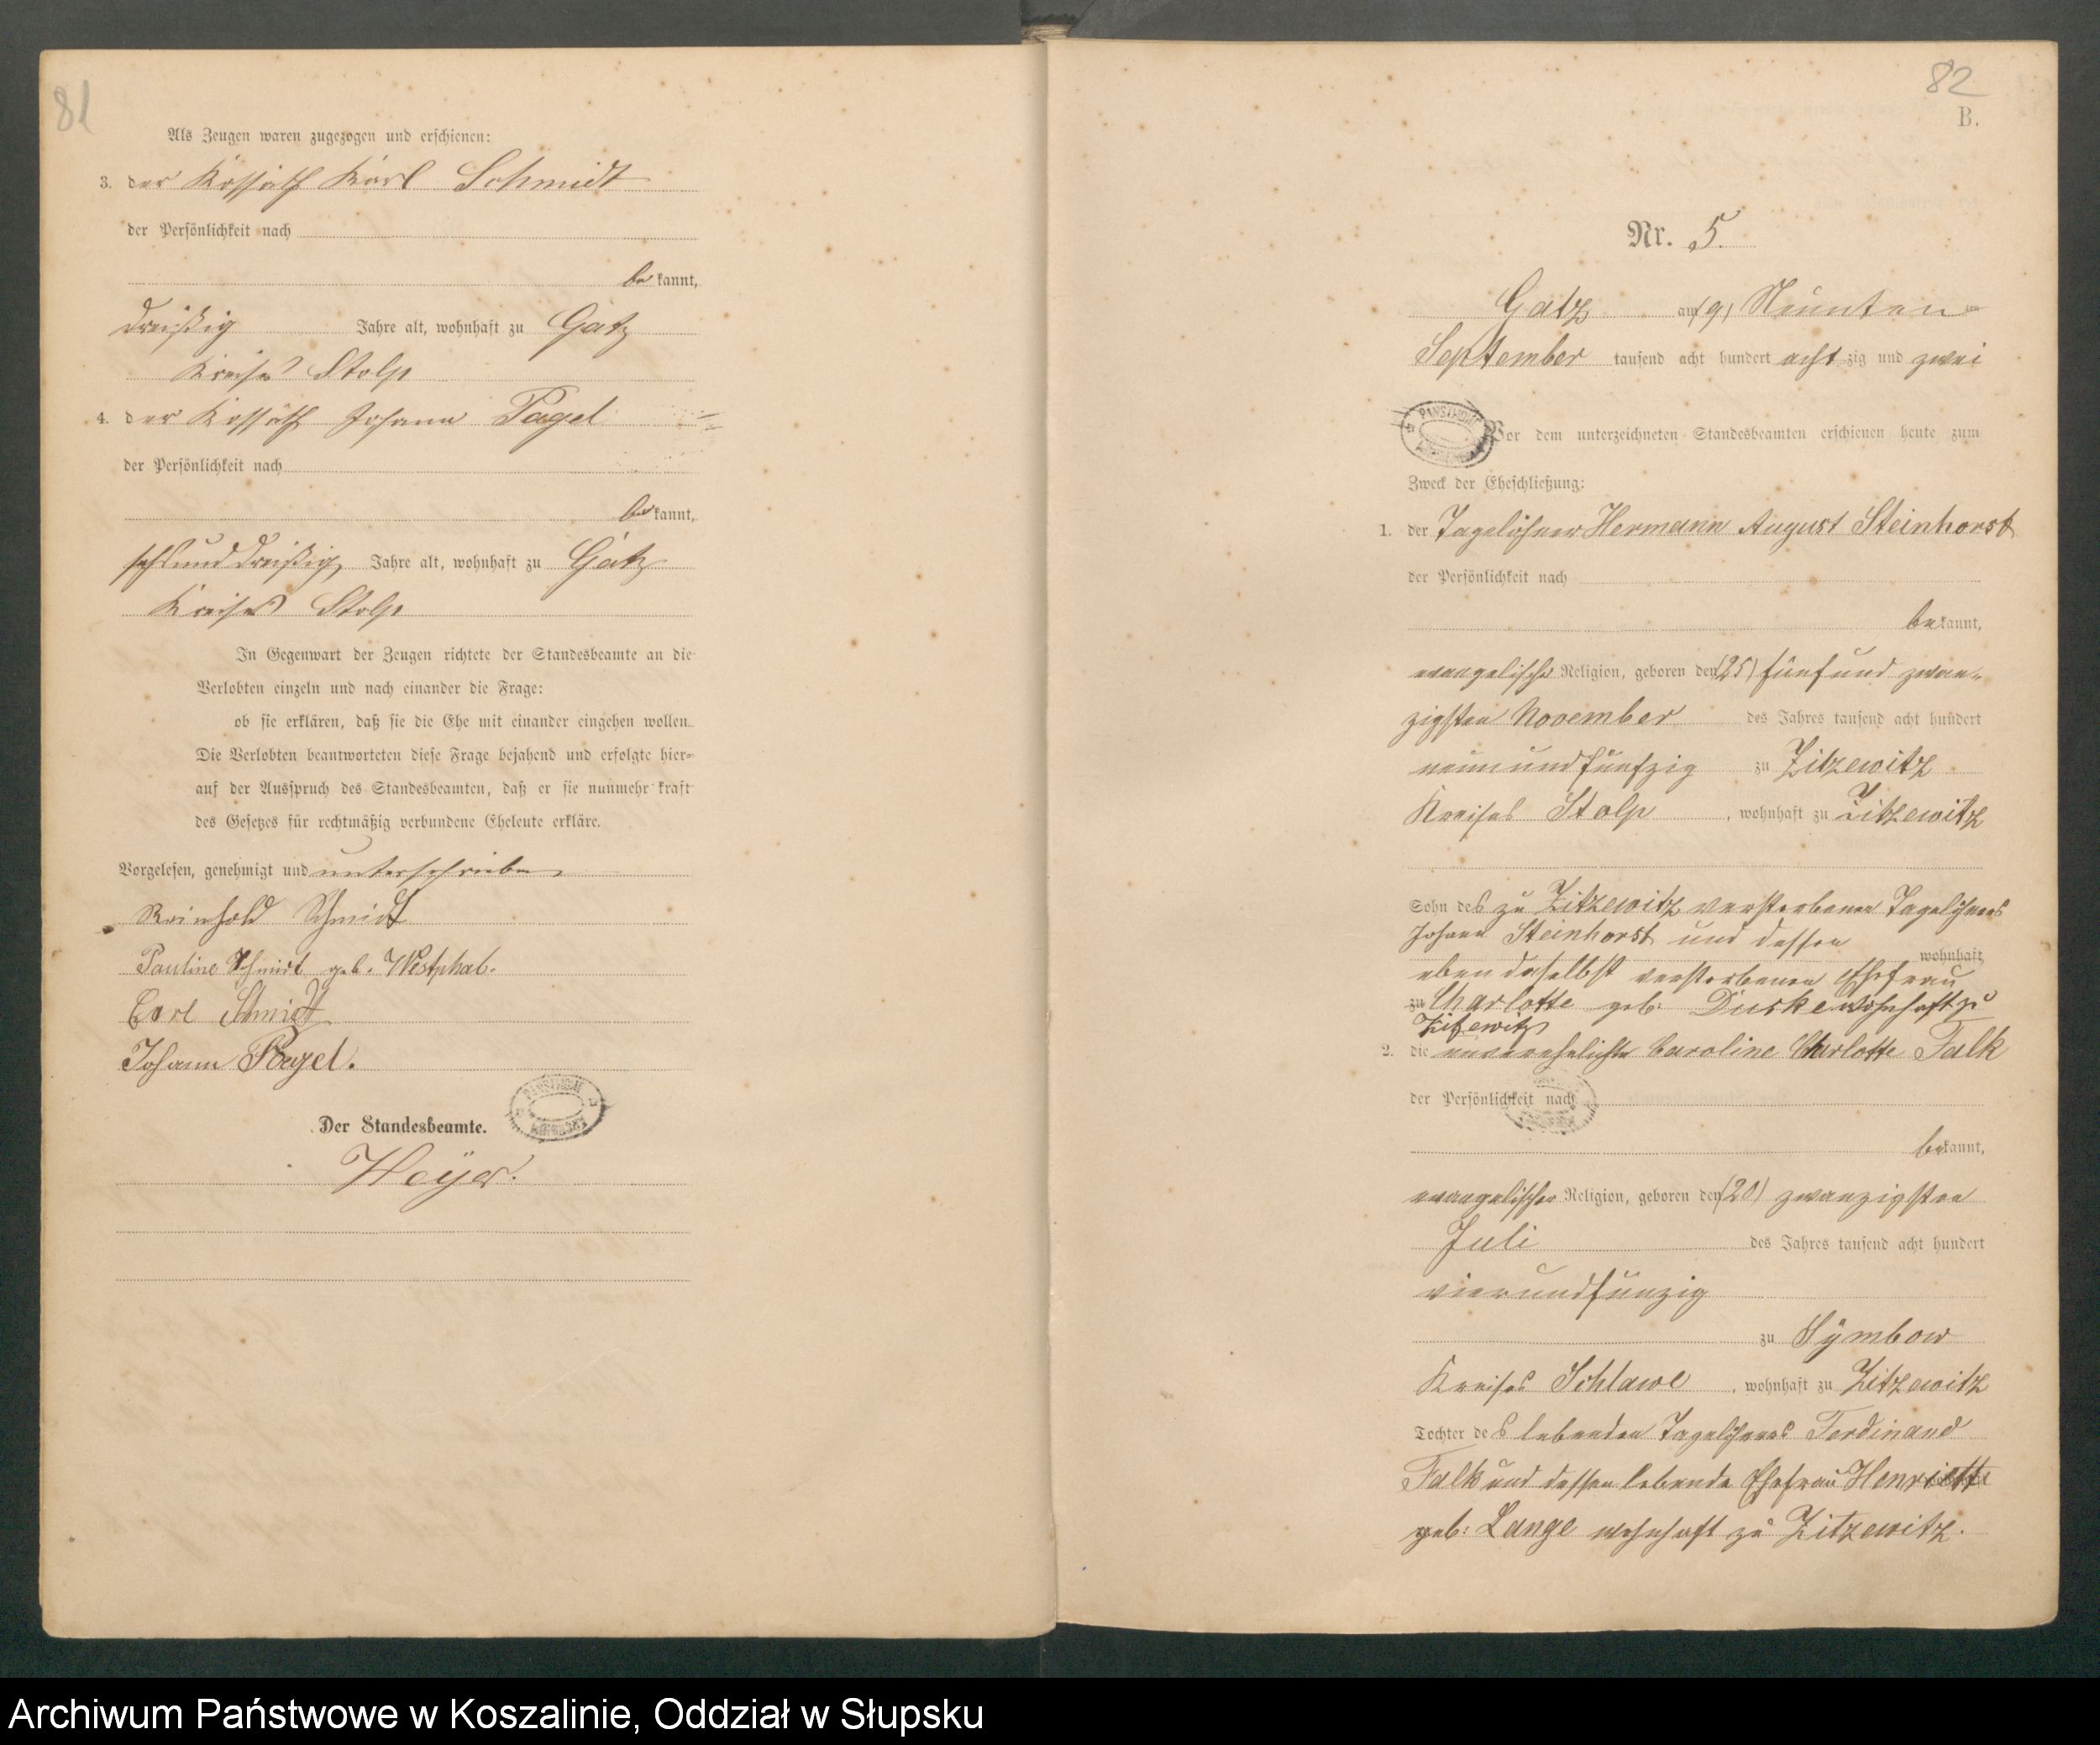 81
Als Zeugen waren zugezogen und erschienen:
3. der Kossäth Karl Schmidt
der Persönlichkeit nach
be kannt,
dreißig Jahre alt, wohnhaft zu Gatz
Kreises Stolp
4. der Kossäth Johann Pagel
der Persönlichkeit nach
be kannt,
unddreißig Jahre alt, wohnhaft zu Gatz
Kreises Stolp
In Gegenwart der Zeugen richtete der Standesbeamte an die
Verlobten einzeln und nach einander die Frage:
ob sie erklären, daß sie die Ehe mit einander eingehen wollen.
Die Verlobten beantworteten diese Frage bejahend und erfolgte hier-
auf der Ausspruch des Standesbeamten, daß er sie nunmehr kraft
des Gesetzes für rechtmäßig verbundene Eheleute erkläre.
Vorgelesen, genehmigt und unterschrieben
Reinhold Schmidt
Pauline Schmidt geb. Westphal.
Carl Schmidt
Johann Pagel.
Der Standesbeamte.
Heyer.
82
B.
Nr. 5.
Gatz am (9) Neunten
September tausend acht hundert achtzig und zwei
Vor dem unterzeichneten Standesbeamten erschienen heute zum
Zweck der Eheschließung:
1. der Tagelöhner Hermann August Steinhorst
der Persönlichkeit nach
be kannt,
evangelischer Religion, geboren den (25) fünfund zwan-
zigsten November des Jahres tausend acht hundert
neunundfünfzig zu Zitzewitz
Kreises Stolp, wohnhaft zu Zitzewitz
Sohn des zu Zitzewitz verstorbenen Tagelöhners
Johann Steinhorst und dessen
wohnhaft
ebendaselbst verstorbenen Ehefrau
zu Charlotte geb. Duske wohnhaft zu
Zitzewitz
2. die unverehelichte Caroline Charlotte Falk
der Persönlichkeit nach
be kannt,
evangelischer Religion, geboren den (20) zwanzigsten
Juli des Jahres tausend acht hundert
vierundfünzig
zu Symbow
Kreises Schlawe, wohnhaft zu Zitzewitz
Tochter des lebenden Tagelöhners Ferdinand
Falk und dessen lebende Ehefrau Henriette
geb: Lange wohnhaft zu Zitzewitz.
Archiwum Państwowe w Koszalinie, Oddział w Słupsku